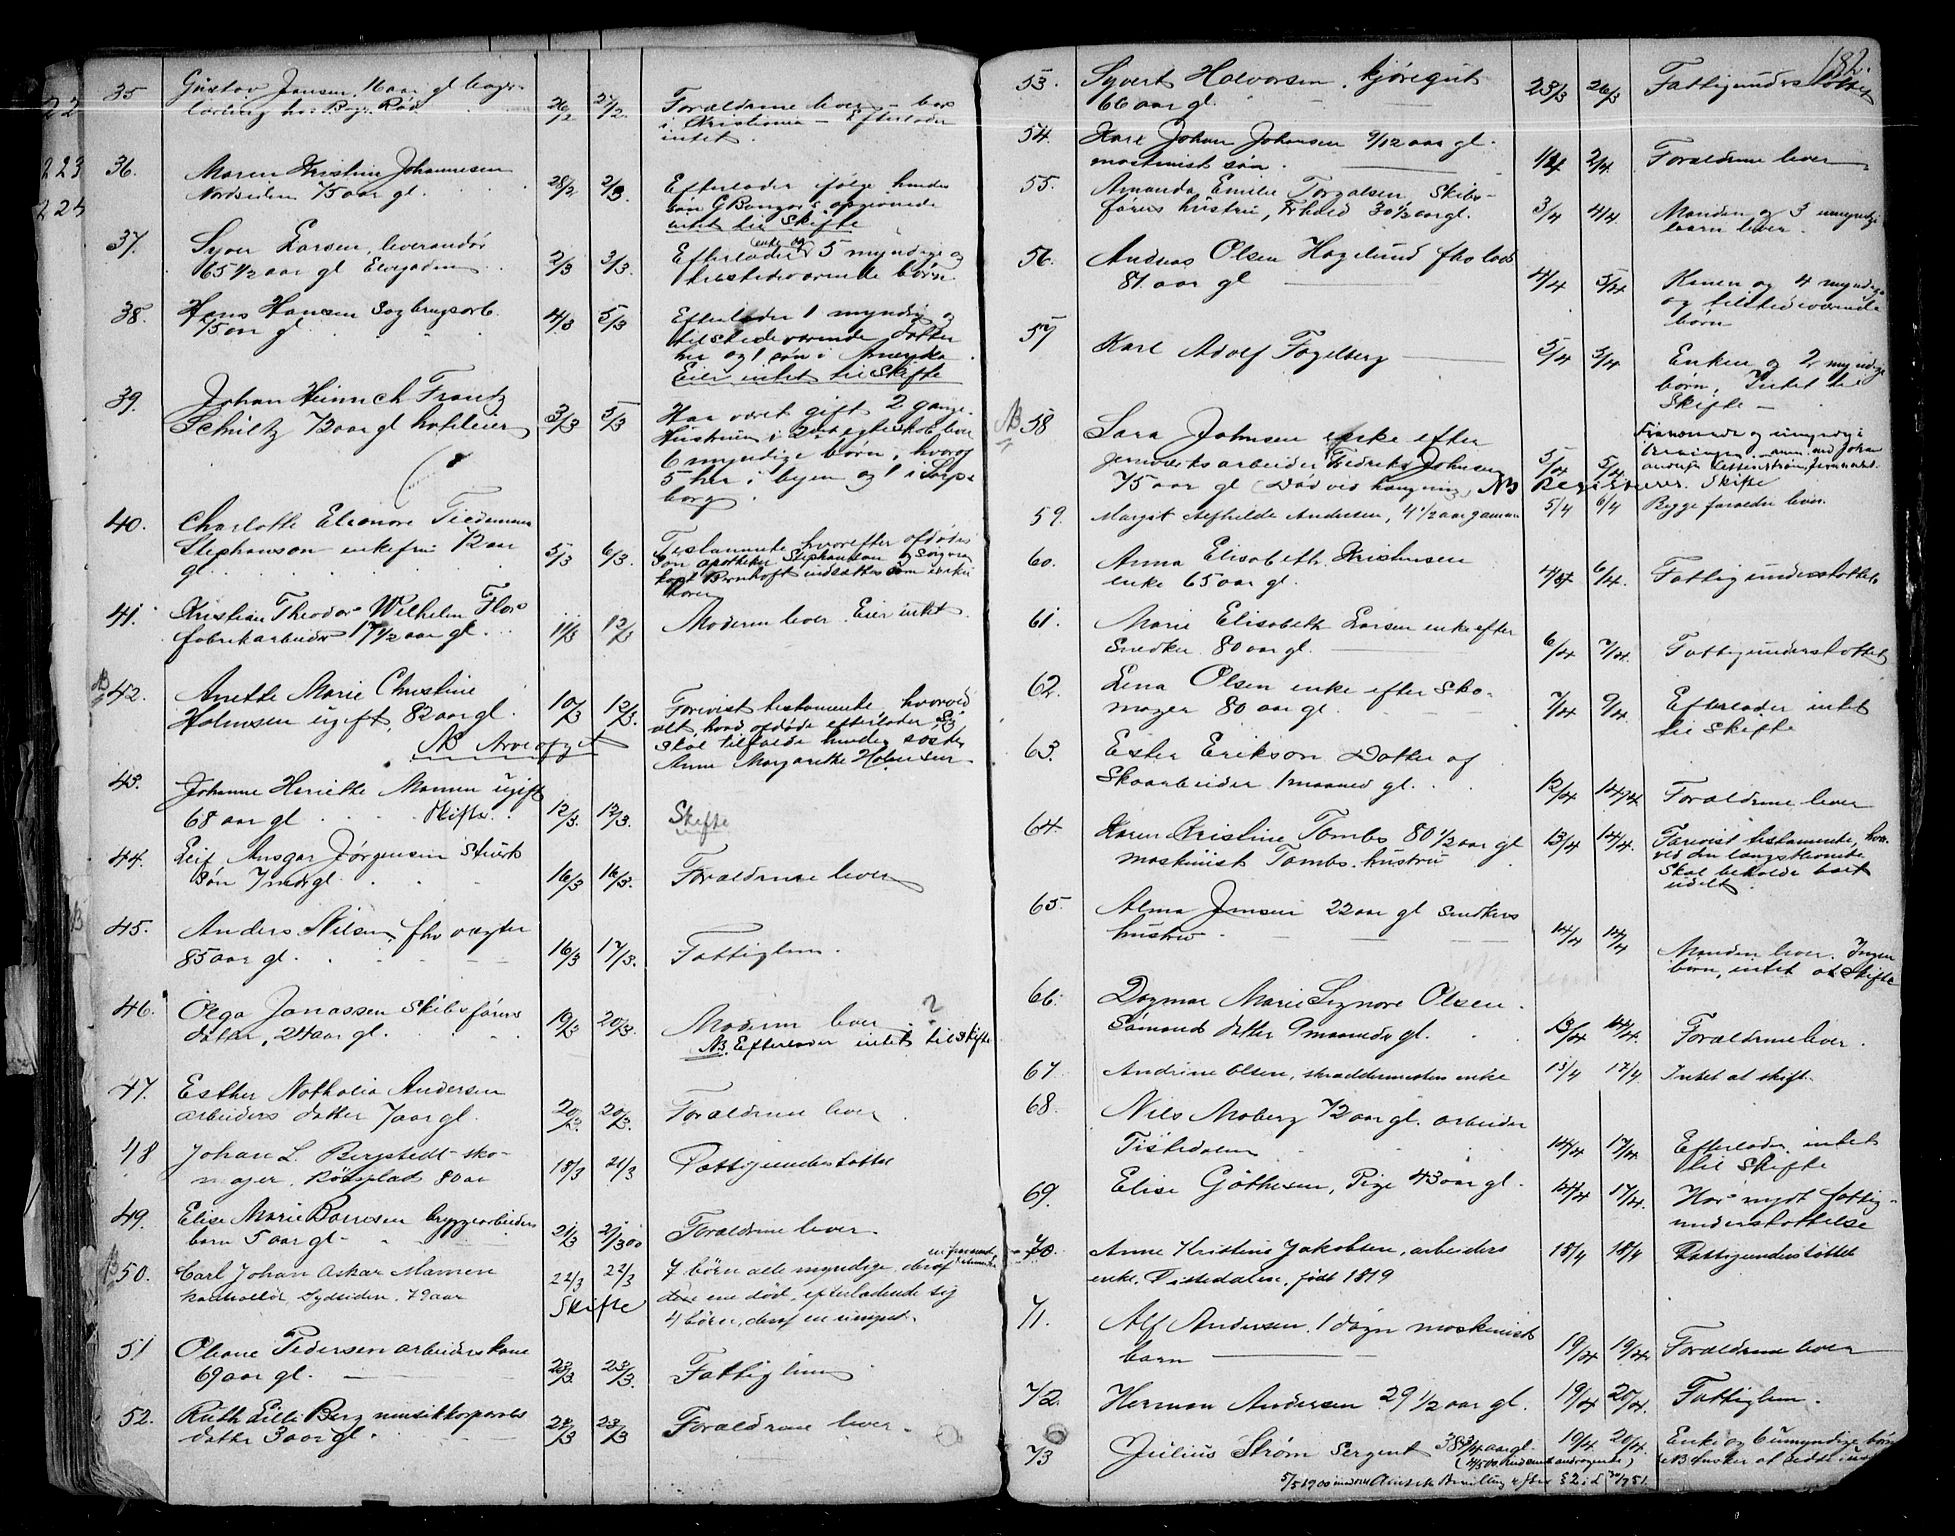 35 Gustav Jensen, 16 aar gl bager-
lærling hos Bagr. Rød. 26/2 27/2. Forældrene lever – bor
i Kristiania – Efterlader
intet.
36. Maren Kristine Johannesen
Nordsiden 75 aar gl. 28/2 2/3. Efterlader ifølge hendes
søn G opgivende
intet til Skifte
37. Syver Larsen, leverandør
65 1/2 aar gl Elvegaden 2/3 3/3. Efterlader enke og 5 myndige og
tilstedeværende børn.
38. Hans Hansen Sagbrugsarb.
75 aar gl. 4/3 5/3 Efterlader 1 myndig og
tilstedeværende Datter
her og 1 søn i Amerika.
Eier intet til Skifte
39. Johan Heinrich Frantz
Schultz 72 aar gl hoteleier 3/3 5/3 Har været gift 2 gange.
Hustruen i 2det egteskab lever
6 myndige børn, hvorog
5 her i byen og 1 i Sarps-
borg.
40. Charlotte Eleonore Tiedemann
Stephanson enkefru 72 aar
gl. 5/3 6/3. Testamente, hvorefter afdødes
søn apotheker Stephanson og
indsættes som
41. Kristian Theodor Wilhelm Flor
fabrikarbeider 17 1/2 aar gl. 11/3 12/3 Moderen lever. Eier intet.
NB 42. Anette Marie Christine
Holmsen ugift, 82 aar gl. 10/3 12/3. Forevist testamente hvorved
alt, hvad afdøde efterlader sig
NB Arveafgift skal tilfalde hendes søster
Anne Margarethe Holmsen
43. Johanne Henriette Mamen ugift
68 aar gl. Skifte. 12/3. 12/3. Skifte
44. Leif Ansgar Jørgensen
søn 7 mdr gl. 16/3 16/3. Forældrene lever
45. Anders Nilsen, fhv vægter
85 aar gl. 16/3 17/3. Fattiglem.
46. Olga Jonassen Skibsførers
datter, 24 aar gl. 19/3 20/3. Moderen lever ?
NB. Efterlader intet til Skifte
47. Esther Nathalia Andersen
arbeiders datter 7 aar gl. 20/3. 20/3. Forældrene lever
48 Johan L. Bergstedt – sko-
mager. Rødsplad 80 aar 18/3 21/3 Fattigunderstøttet
49. Elise Marie Bornesen bryggearbeiders
barn 5 aar gl. 21/3 21/3 00 Forældrene lever.
50. Carl Johan Oskar Mamen
kontrollør, Sydsiden, 79 aar 22/3 22/3 7 børn alle myndige, deraf
Skifte ene død, efterladende sig
4 børn, deraf en umynd.
51 Oleane Pedersen arbeiderskone
69 aar gl. 23/3. 23/3. Fattiglem
52. Ruth Lilli Berg musikkorporals
datter 3 aar gl. 23/3 23/3 Forældrene lever.
182.
53. Syvert Halvorsen, kjøregut
66 aar gl. 23/3 26/3 Fattigunderstøttet
54. Karl Johan Johansen 9/12 aar gl.
maskinist søn. 1/4 2/4 Forældrene lever
55. Amanda Emilie Torgalsen, Skibs-
førers hustru, Frhald 30 1/2 aar gl. 3/4 4/4 Manden og 3 umyndige
barn lever.
56. Andreas Olsen Hagelund fhv lods
81 aar gl 4/4 5/4 Konen og 4 myndige
og tilstedeværende
børn
57 Karl Adolf Fagelberg 5/4 5/4 Enken og 2 myndige
børn. Intet til
Skifte –
NB 58 Sara Johnsen enke efter
jernværksarbeider Fredrik Johnsen
75 aar gl (Død ved hængning) NB 5/4 5/4. Registreres. Skifte
59. Margit Alfhilde Andersen, 4 1/2 aar gammel 5/4 6/4 Begge forældre lever.
60. Anna Elisabeth Kristensen
enke 65 aar gl. 4/4 6/4. Fattigunderstøttet
61. Marie Elisabeth Larsen enke efter
Snedker 80 aar gl. 6/4 7/4. Fattigunderstøttet
62. Lena Olsen enke efter Sko-
mager 80 aar gl. 7/4 9/4. Efterlader intet
til Skifte
63. Ester Erikson Datter af
Skoarbeider 1 maaned gl. 12/4 14/4 Forældrene lever
64. Karen Kristine Tombs 80 1/2 aar gl
maskinist Tombs. hustru 13/4 14/4. Forevist testamente, hvor-
ved den længstlevende
skal beholde boet
udelt.
65. Alma Jensen 22 aar gl snedkers
hustru. 14/4 14/4 Manden lever. Ingen
born, intet at skifte
66. Dagmar Marie Signore Olsen.
Sømands datter 9 maaneder gl. 13/4 14/4. Forældrene lever.
67 Andrine Olsen, skræddermesters enke 13/4 17/4 Intet at skift.
68. Nils Moberg 72 aar gl. arbeider
Tistedalen 14/4 17/4. Efterlader intet
til Skifte
69. Elise Gøthesen, Pige 43 aar gl. 14/4 17/4. Har nydt fattig-
understøttelse
70. Anne Kristine Jakobsen, arbeiders
enke. Tistedalen, født 1819 15/4 18/4 Fattigunderstøttet
71. Alf Andersen, 1 døgn maskinist
barn 19/4 19/4 Forældrene lever
72. Herman Andersen 29 1/2 aar gl. 19/4 20/4. Fattiglem.
73 Julius Strøm Sergent 38 3/4 aar gl. 19/4 20/4. Enke og 6 umyndige børn
NB ønsker at sidde i uskiftet